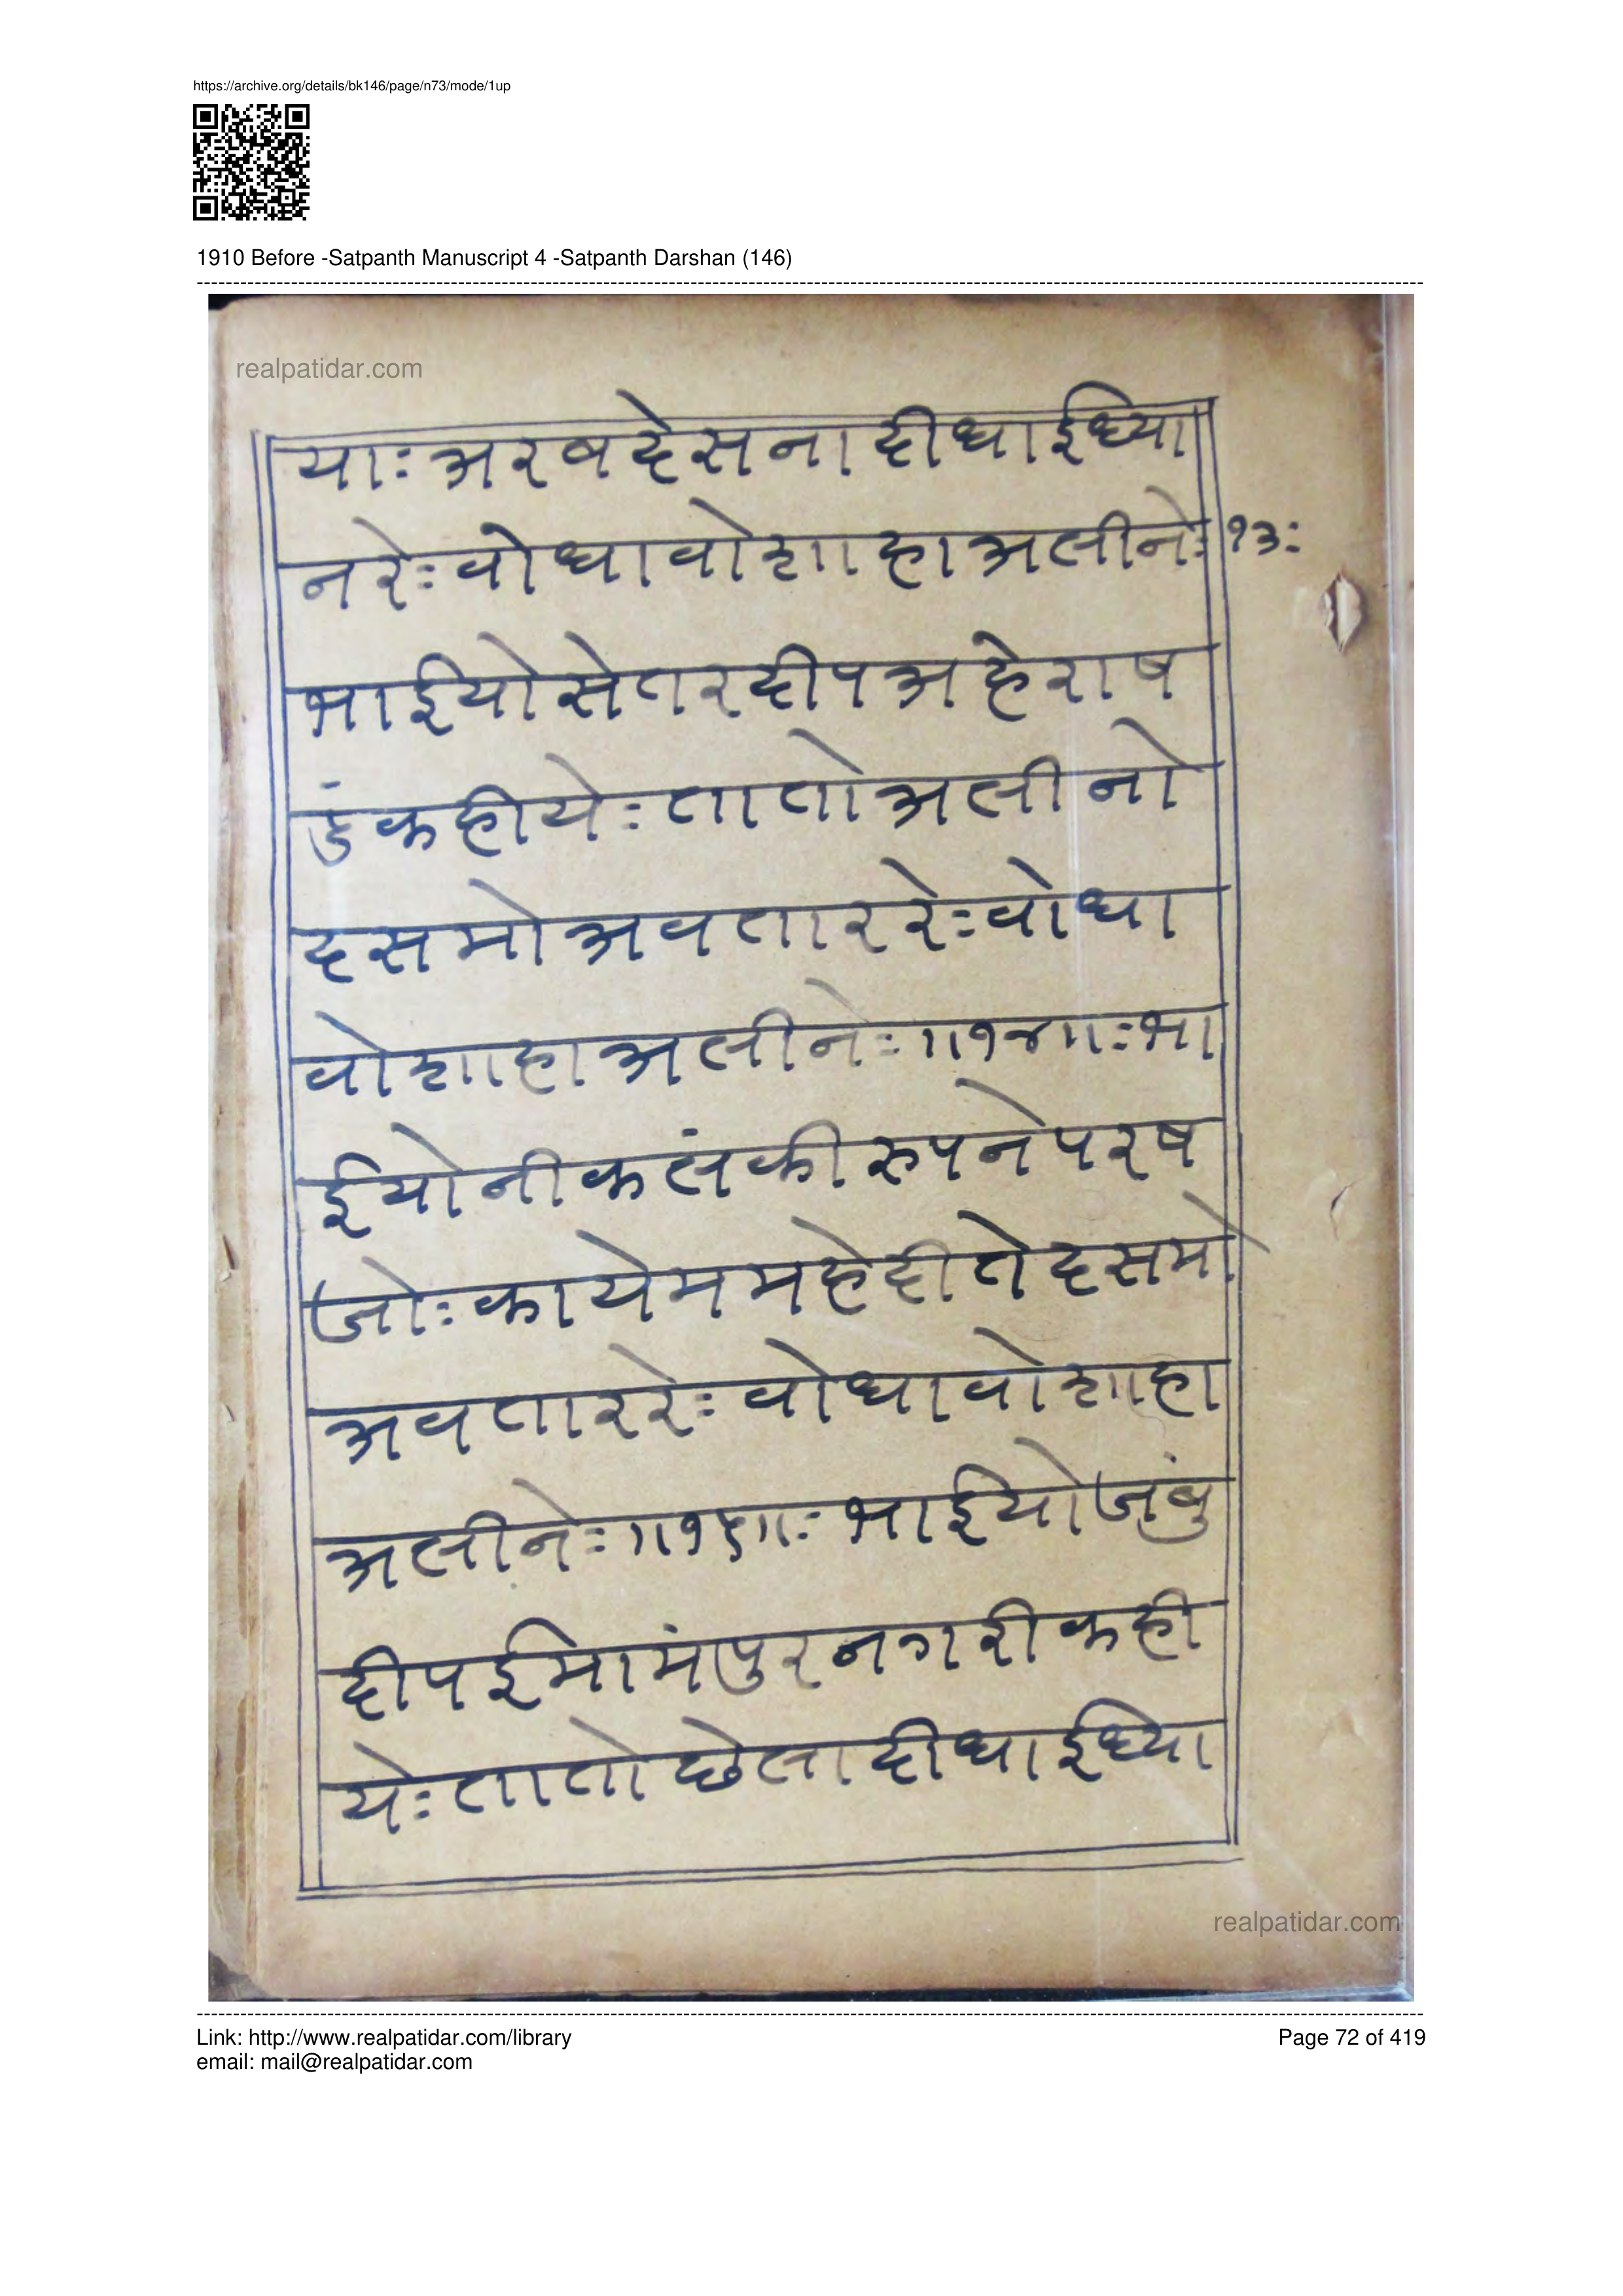 https://archive.org/details/bk146/page/n73/mode/1up
1910 Before -Satpanth Manuscript 4 -Satpanth Darshan (146)
realpatidar.com
याः अरबदेसना दीधाईध्या
नरेः वोधावोशाहाअलीनेः १३ः
भाईयोसेतरदीपअहेराष
डंकहीयेः तातोअलीनो
दसमोअवताररेः वोधा
वोशाहाअलीनेः ॥१४॥ः भा
ईयोनीकलंकीरुपनेपरष
जोः कायेममहेदीतेदसमो
अवताररेः वोधावोशाहा
अलीनेः ॥१५॥ः भाईयोजंबु
दीपईमामंपुरनगरीकही
येः तातोछेलादीधाईध्या
realpatidar.com
Link: http://www.realpatidar.com/library
Page 72 of 419
email: mail@realpatidar.com